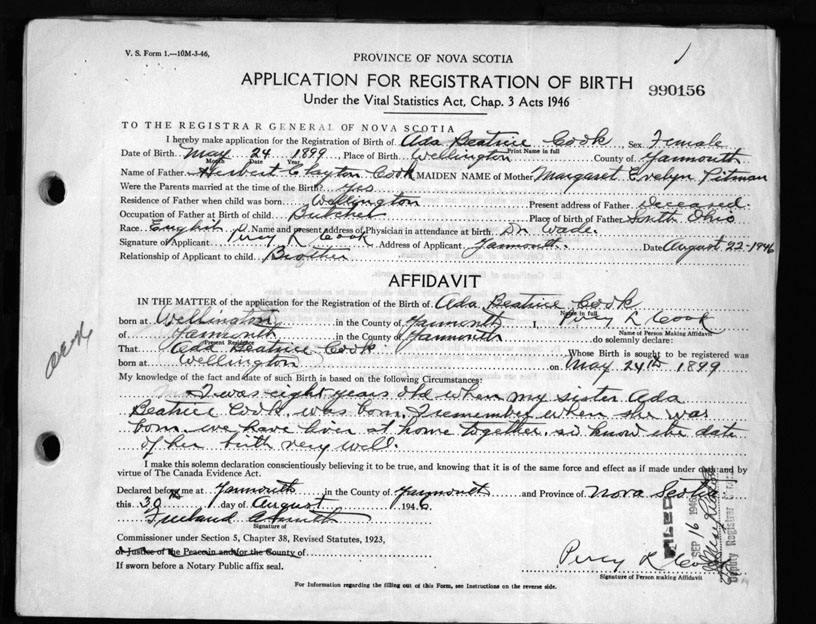 V. S. Form 1.—10M-3-46.
PROVINCE OF NOVA SCOTIA
APPLICATION FOR REGISTRATION OF BIRTH
990156
Under the Vital Statistics Act, Chap. 3 Acts 1946
TO THE REGISTRAR GENERAL OF NOVA SCOTIA
I hereby make application for the Registration of Birth of Ada Beatrice Cook Sex Female
Print Name in full
Date of Birth May 24 1899 Place of Birth Wellington County of Yarmouth
Month Date Year
Name of Father Herbert Clayton Cook MAIDEN NAME of Mother Margaret Evelyn Pitman
Were the Parents married at the time of the Birth? Yes
Residence of Father when child was born Wellington Present address of Father Deceased.
Occupation of Father at Birth of child Butcher Place of birth of Father South Ohio
Race English Name and present address of Physician in attendance at birth Dr Wade.
Signature of Applicant Percy L Cook Address of Applicant Yarmouth. Date August 22-1946
Relationship of Applicant to child Brother
AFFIDAVIT
IN THE MATTER of the application for the Registration of the Birth of Ada Beatrice Cook
Name in full
born at Wellington in the County of Yarmouth I, Percy L Cook
Name of Person Making Affidavit
of Yarmouth in the County of Yarmouth do solemnly declare:
Present Residence
That Ada Beatrice Cook Whose Birth is sought to be registered was
born at Wellington on May 24th 1899
My knowledge of the fact and date of such Birth is based on the following Circumstances:
I was eight years old when my sister Ada
Beatrice Cook was born. I remember when she was
born. we have liven at home together. so know the date
of her birth very well.
I make this solemn declaration conscientiously believing it to be true, and knowing that it is of the same force and effect as if made under oath and by
virtue of The Canada Evidence Act.
Declared before me at Yarmouth in the County of Yarmouth and Province of Nova Scotia
this 30th day of August 1946
Signature of
Commissioner under Section 5, Chapter 38, Revised Statutes, 1923,
or Justice of the Peace in and for the County of
If sworn before a Notary Public affix seal.
Percy L Cook
Signature of Person making Affidavit
For Information regarding the filling out of this Form, see Instructions on the reverse side.
FILED
SEP 16 1946
Deputy Registrar